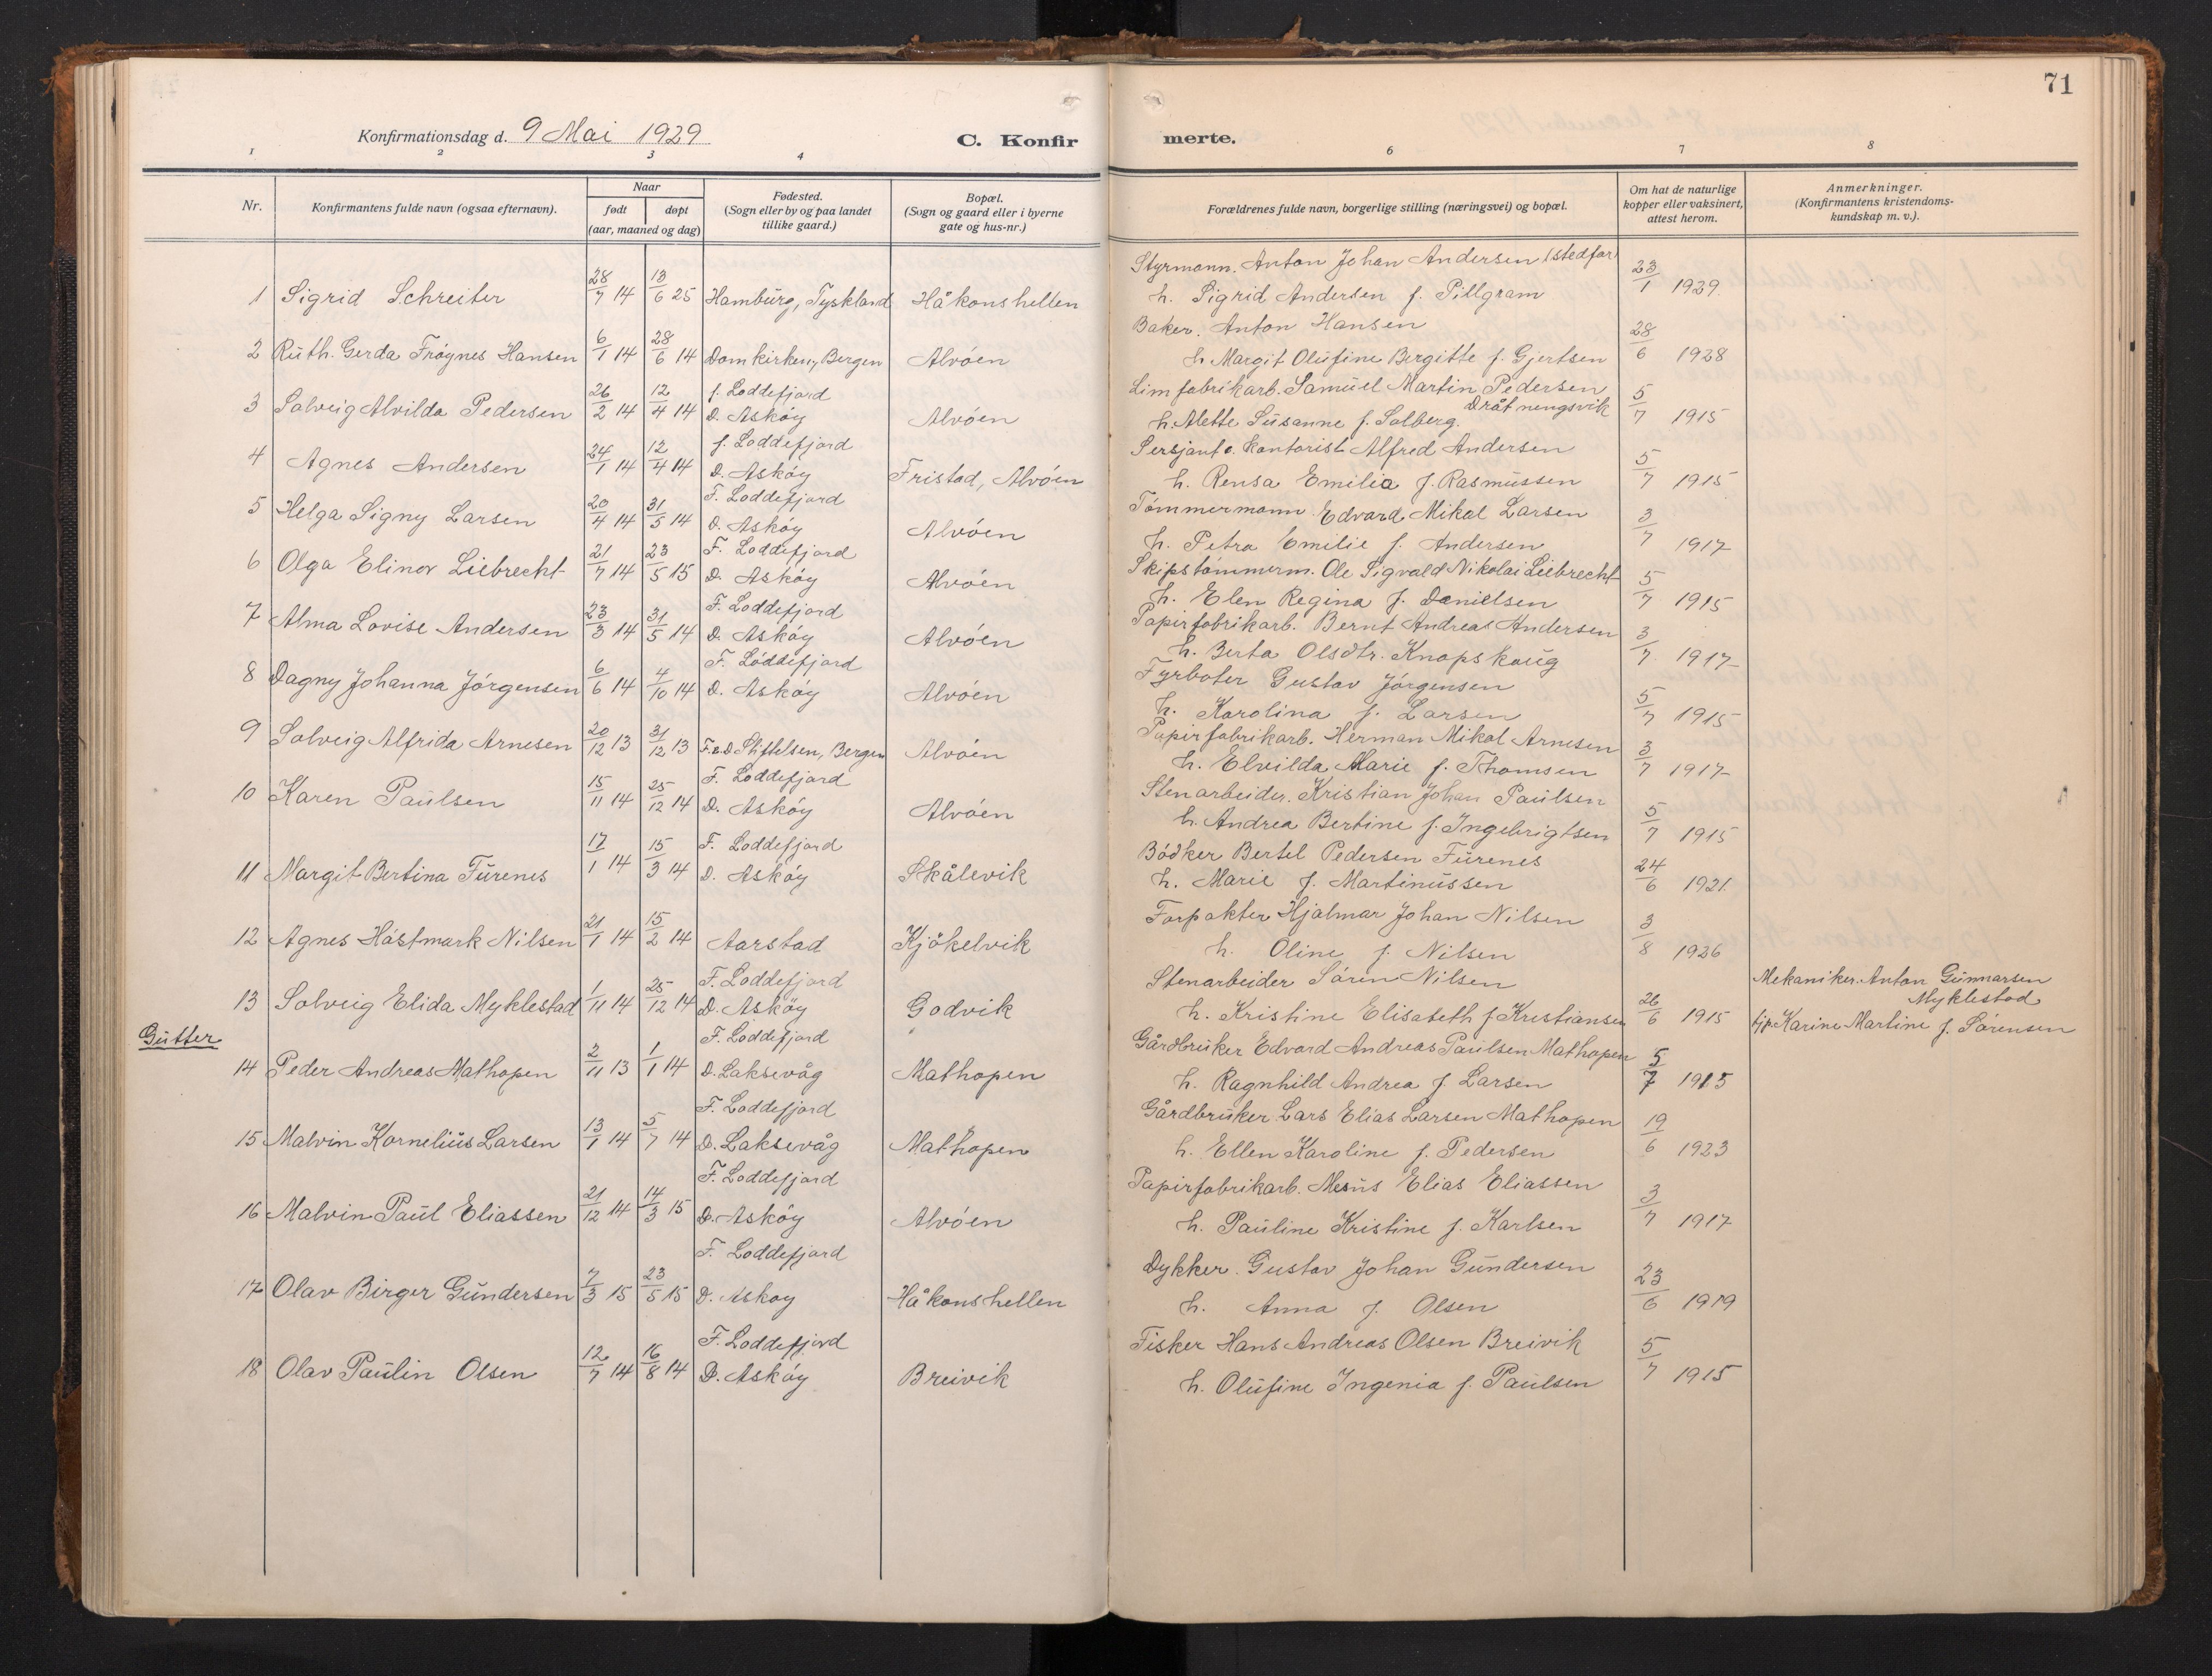 71
Konfirmationsdag d. 9 Mai 1929
C. Konfirmerte.
1 2 3 4 6 7 8
Nr.
Konfirmantens fulde navn (ogsaa efternavn).
Naar
født døpt
(aar, maaned og dag)
Fødested.
(Sogn eller by og paa landet
tillike gaard.)
Bopæl.
(Sogn og gaard eller i byerne
gate og hus-nr.)
Forældrenes fulde navn, borgerlige stilling (næringsvei) og bopæl.
Om hat de naturlige
kopper eller vaksinert,
attest herom.
Anmerkninger.
(Konfirmantens kristendoms-
kundskap m. v.).
1 Sigrid Schreiter 28/7 14 13/6 25 Hamburg, Tyskland Håkonshellen
Styrmann. Anton Johan Andersen (stedfar)
h. Sigrid Andersen f. Pillgram 23/1 1929
2 Ruth. Gerda Frøynes Hansen 6/1 14 28/6 14 Domkirken, Bergen Alvøen
Baker. Anton Hansen
h. Margit Olufine Bergitte f. Gjertsen 28/6 1928
3 Solveig Alvilda Pedersen 26/2 14 12/4 14 f. Loddefjord
D. Askøy Alvøen
Limfabrikarb. Samuel Martin Pedersen
h. Alette Susanne f. Solberg. 5/7 1915
4 Agnes Andersen 24/1 14 12/4 14 f. Loddefjord
D. Askøy Fristad, Alvøen
Sersjant o. kontorist Alfred Andersen
h. Rensa Emilie f. Rasmussen 5/7 1915
5 Helga Signy Larsen 20/4 14 31/5 14 F. Loddefjord
D. Askøy Alvøen
Tømmermann Edvard Mikal Larsen
h. Petra Emilie f. Andersen 3/7 1917
6 Olga Elinor Liebrecht 21/7 14 23/5 15 F. Loddefjord
D. Askøy Alvøen
Skipstømmerm. Ole Sigvald Nikolai Liebrecht
h. Elen Regina f. Danielsen 5/7 1915
7 Alma Lovise Andersen 23/3 14 31/5 14 F. Loddefjord
D. Askøy Alvøen
Papirfabrikarb. Bernt Andreas Andersen
h. Berta Olsdtr. Knapskoug 3/7 1917
8 Dagny Johanna Jørgensen 6/6 14 4/10 14 F. Loddefjord
D. Askøy Alvøen
Fyrbøter Gustav Jørgensen
h. Karolina f. Larsen 5/7 1915
9 Solveig Alfrida Arnesen 20/12 13 31/12 13 F. o D Stiftelsen, Bergen Alvøen
Papirfabrikarb. Herman Mikal Arnesen
h. Elvilda Marie f. Thomsen 3/7 1917
10 Karen Paulsen 15/11 14 25/12 14 F. Loddefjord
D. Askøy Alvøen
Stenarbeider. Kristian Johan Paulsen
h. Andrea Bertine f. Ingebrigtsen 5/7 1915
11 Margit Bertina Furenes 17/1 14 15/3 14 F. Loddefjord
D. Askøy Skålevik
Bødker Bertel Pedersen Furenes
h. Marie f. Martinussen 24/6 1921
12 Agnes Høstmark Nilsen 21/1 14 15/2 14 Aarstad Kjøkelvik
Forpakter Hjalmar Johan Nilsen
h. Oline f. Nilsen 3/8 1926
13 Solveig Elida Myklestad 1/11 14 25/12 14 F. Loddefjord
D. Askøy Godvik
Stenarbeider Søren Nilsen
h. Kristine Elisabeth f. Kristiansen 26/6 1915
Mekaniker. Anton Gunnarsen
Myklestad
Karine Martine f. Sørensen
Gutter
14 Peder Andreas Mathopen 2/11 13 1/1 14 F. Loddefjord
D. Laksevåg Mathopen
Gårdbruker Edvard Andreas Paulsen Mathopen
h. Ragnhild Andrea f. Larsen 5/7 1915
15 Malvin Kornelius Larsen 13/1 14 5/7 14 F. Loddefjord
D. Laksevåg Mathopen
Gårdbruker Lars Elias Larsen Mathopen
h. Ellen Karoline f. Pedersen 19/6 1923
16 Malvin Paul Eliassen 21/12 14 14/3 15 F. Loddefjord
D. Askøy Alvøen
Papirfabrikarb. Elias Eliassen
h. Pauline Kristine f. Karlsen 3/7 1917
17 Olav Birger Gundersen 7/3 15 23/5 15 F. Loddefjord
D. Askøy Håkonshellen
Dykker. Gustav Johan Gundersen
h. Anna f. Olsen 23/6 1919
18 Olav Paulin Olsen 12/7 14 16/8 14 F. Loddefjord
D. Askøy Breivik
Fisker Hans Andreas Olsen Breivik
h. Olufine Ingenia f. Paulsen 5/7 1915